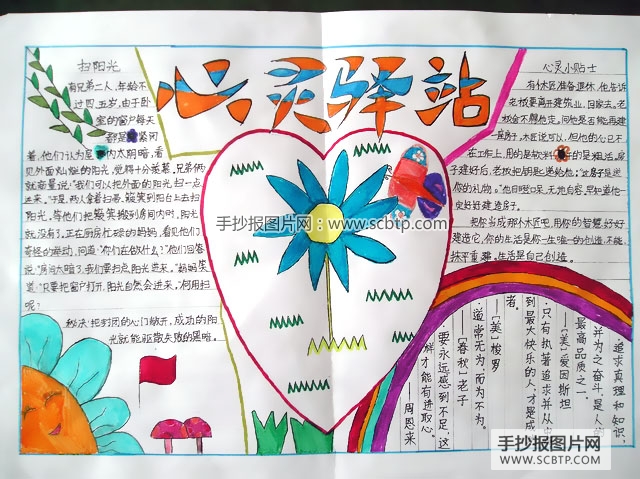 心灵驿站
扫阳光
有兄弟二人，年龄不
过四、五岁，由于卧
室的窗户每天
都是紧闭
着，他们认为屋内太阴暗，看
见外面灿烂的阳光，觉得十分羡慕。兄弟俩
就商量说："我们可以把外面的阳光扫一点
进来。"于是，两人拿着扫帚、簸箕到阳台上去扫
阳光。等他们把簸箕搬到房间内时，阳光
就没有了。正在厨房忙碌的妈妈，看见他们
奇怪的举动，问道："你们在做什么？"他们回答
说："房间太暗了，我们要扫点阳光进来。"妈妈笑
道："只要把窗户打开，阳光自然会进来，何用扫
呢？"
秘诀：把封闭的心门敞开，成功的阳
光就能驱散失败的黑暗。
心灵小贴士
有个木匠准备退休，他告诉
老板要离开建筑业，回家去。老
板舍不得他走，问他是否能再建
一座房子，木匠说可以，但他的心已不
在工作上，用的是软料，的是粗活。房
子建好后，老板把钥匙递给他："这房子是送
你的礼物。"他目瞪口呆，无地自容，早知道他一
定好好建造房子。
把你当成那个木匠吧，用你的智慧好好
建造它，你的生活是你一生唯一的创造，不能
抹平重建。生活是自己创造。
追求真理和知识，
并为之奋斗，是人的
最高品质之一。
——【美】爱因斯坦
只有执著追求并从中
到最大快乐的人，才是成
者。
——【美】梭罗
道常无为，而为不为。
——【春秋】老子
要永远感到不足，这
样才能有进取心。
——周恩来
手抄报图片网：www.scbtp.com
手抄报图片网
WWW.SCBTP.COM